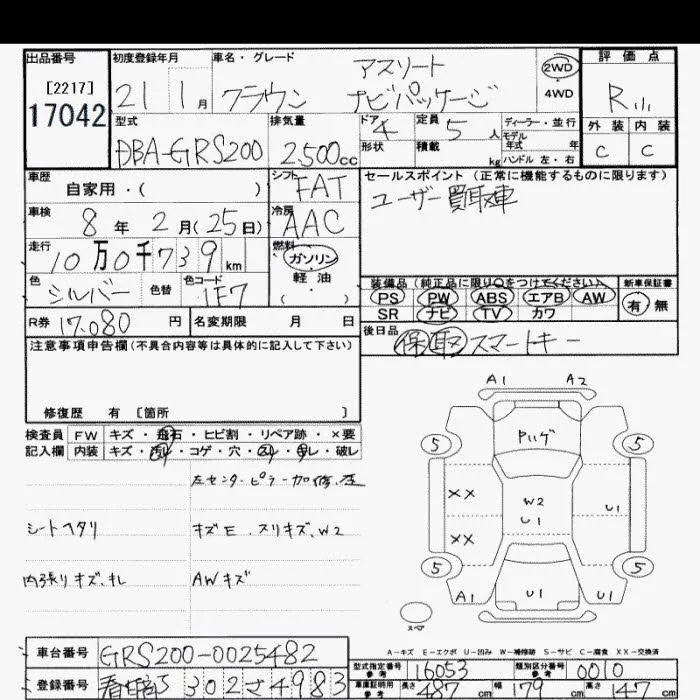 出品番号 初度登録年月 車名・グレード アスリート 評価点
[2217] 21 1月 クラウン ナビパッケージ 2WD 4WD R
17042
型式 排気量 ドア 4 定員 5人 ディーラー・並行 外装 内装
DBA-GRS200 2,500cc 形状 積載 kg モデル年式 年 ハンドル 左・右 C C
車歴 自家用・( ) シフト FAT セールスポイント (正常に機能するものに限ります)
車検 8年 2月(25日) 冷房 AAC ユーザー買取車
走行 10万0千739km 燃料 ガソリン 軽油 ( )
色 シルバー 色替 色コード 1F7 装備品 (純正品に限り○をつけてください) 新車保証書
PS PW ABS エアB AW 有 無
SR ナビ TV カワ
R券 17,080円 名変期限 月 日 後日品 保 取 スマートキー
注意事項申告欄(不具合内容等は具体的に記入して下さい)
修復歴 有 [箇所 ]
検査員 FW キズ・飛石・ヒビ割・リペア跡・×要
記入欄 内装 キズ・汚レ・コゲ・穴・スレ・キレ・破レ
左センターピラー加修
シートヘタリ キズE、スリキズ、W2
内張りキズ、キレ AWキズ
A1 A2
Pハゲ
5 5
XX W2 U1 U1
XX
5 5
A1 U1 U1
スペア
A-キズ E-エクボ U-凹み W-補修跡 S-サビ C-腐食 XX-交換済
車台番号 GRS200-0025482
型式指定番号 参考 16053 類別区分番号 参考 0010
登録番号 302さ4983
車庫証明用 参考 長さ 487cm 幅 179cm 高さ 147cm